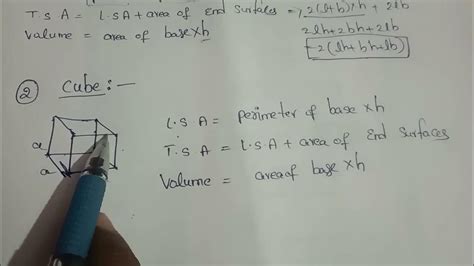 T S A = L.S.A + area of End surfaces = 2(l+b)h + 2lb
Volume = area of base×h
2lh+2bh+2lb
=2(lh+bh+lb)
② Cube:-
a
a
L.S A = perimeter of base×h
T.S A = L.S.A + area of End surfaces
Volume = area of base×h